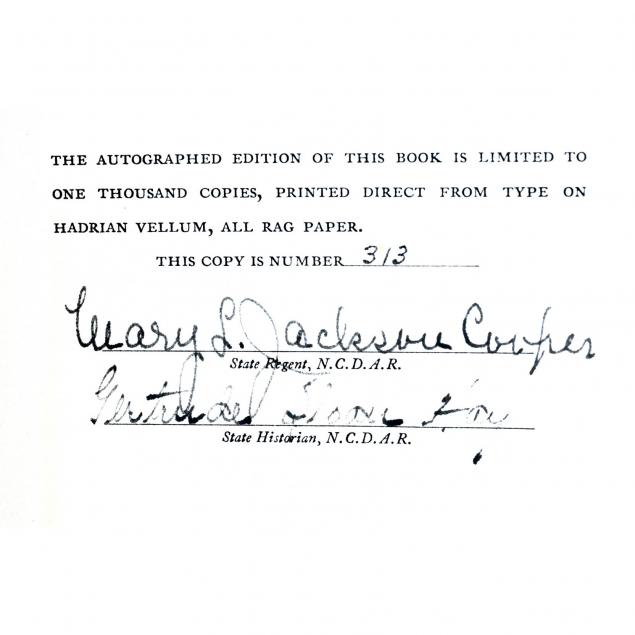 THE AUTOGRAPHED EDITION OF THIS BOOK IS LIMITED TO
ONE THOUSAND COPIES, PRINTED DIRECT FROM TYPE ON
HADRIAN VELLUM, ALL RAG PAPER.
THIS COPY IS NUMBER 313
Mary L. Jackson Cooper
State Regent, N.C.D.A.R.
Gertrude
State Historian, N.C.D.A.R.